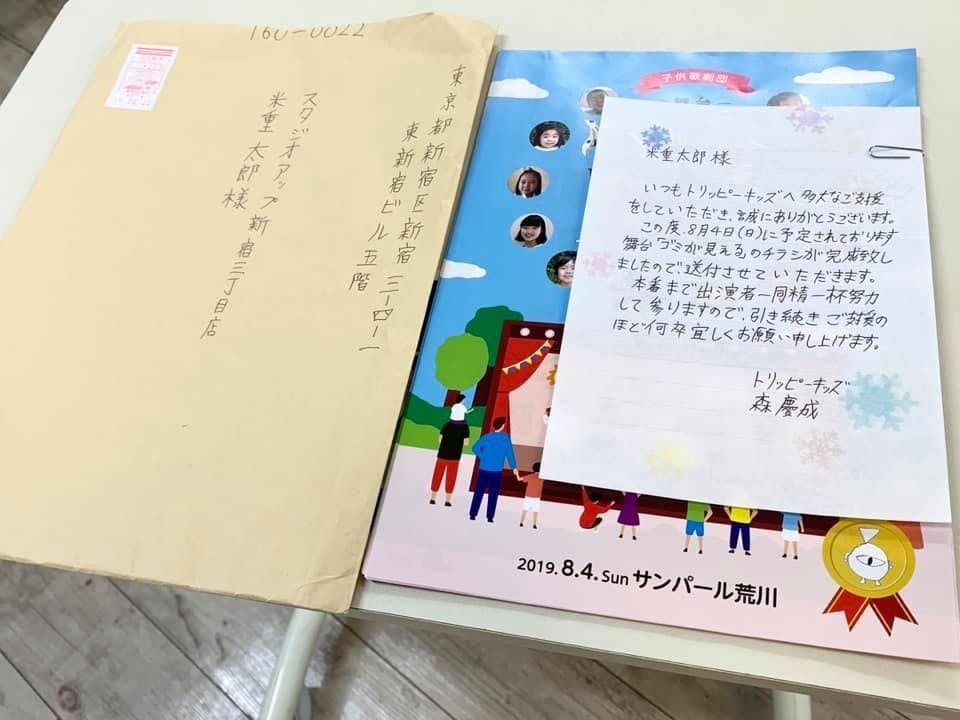 160-0022
東京都新宿区新宿三ー四ー一
東新宿ビル五階
スタジオアップ新宿三丁目店
米重太郎様
子供歌劇団
米重太郎様
いつもトリッピーキッズへ多大なご支援
をしていただき、誠にありがとうございます。
この度、8月4日(日)に予定されております
舞台「ゴミが見える」のチラシが完成致し
ましたので、送付させていただきます。
本番まで出演者一同精一杯努力
して参りますので、引き続きご支援の
ほど何卒宜しくお願い申し上げます。
トリッピーキッズ
森慶成
2019.8.4.Sun サンパール荒川